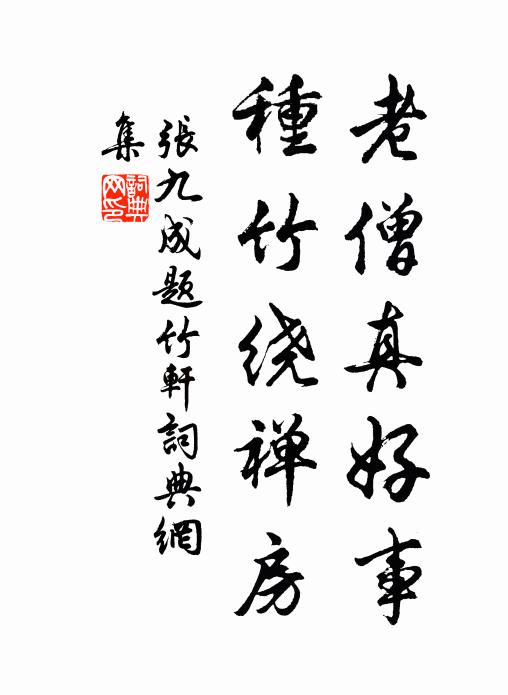 老僧真好事
種竹绕禅房
張九成题竹軒詞典網
集
詞典网印